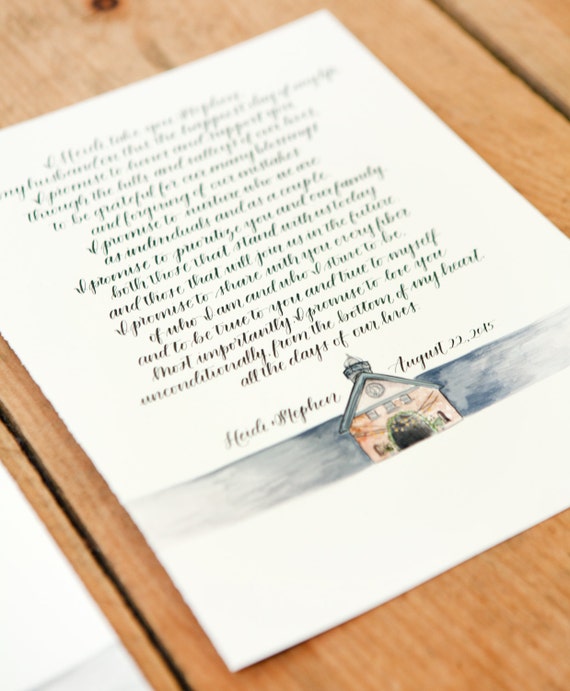 I Heidi take you Stephen
my husband on this the happiest day of my life.
I promise to honor and support you
through the hills and valleys of our lives.
to be grateful for our many blessings
and forgiving of our mistakes
I promise to nurture who we are
as individuals and as a couple.
I promise to prioritize you and our family.
both those that stand with us today
and those that will join us in the future.
I promise to share with you every fiber
of who I am and who I strive to be.
and to be true to you and true to myself
Most importantly I promise to love you
unconditionally from the bottom of my heart
all the days of our lives
Heidi & Stephen
August 22, 2015